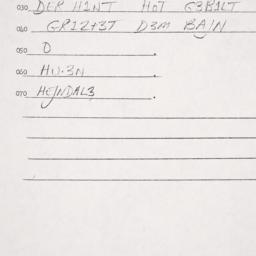 030 DER H1NT H07 G3B1LT
040 GR1Z+3T D3M BAJN
050 O
060 HU.3N
070 HEJNDAL3